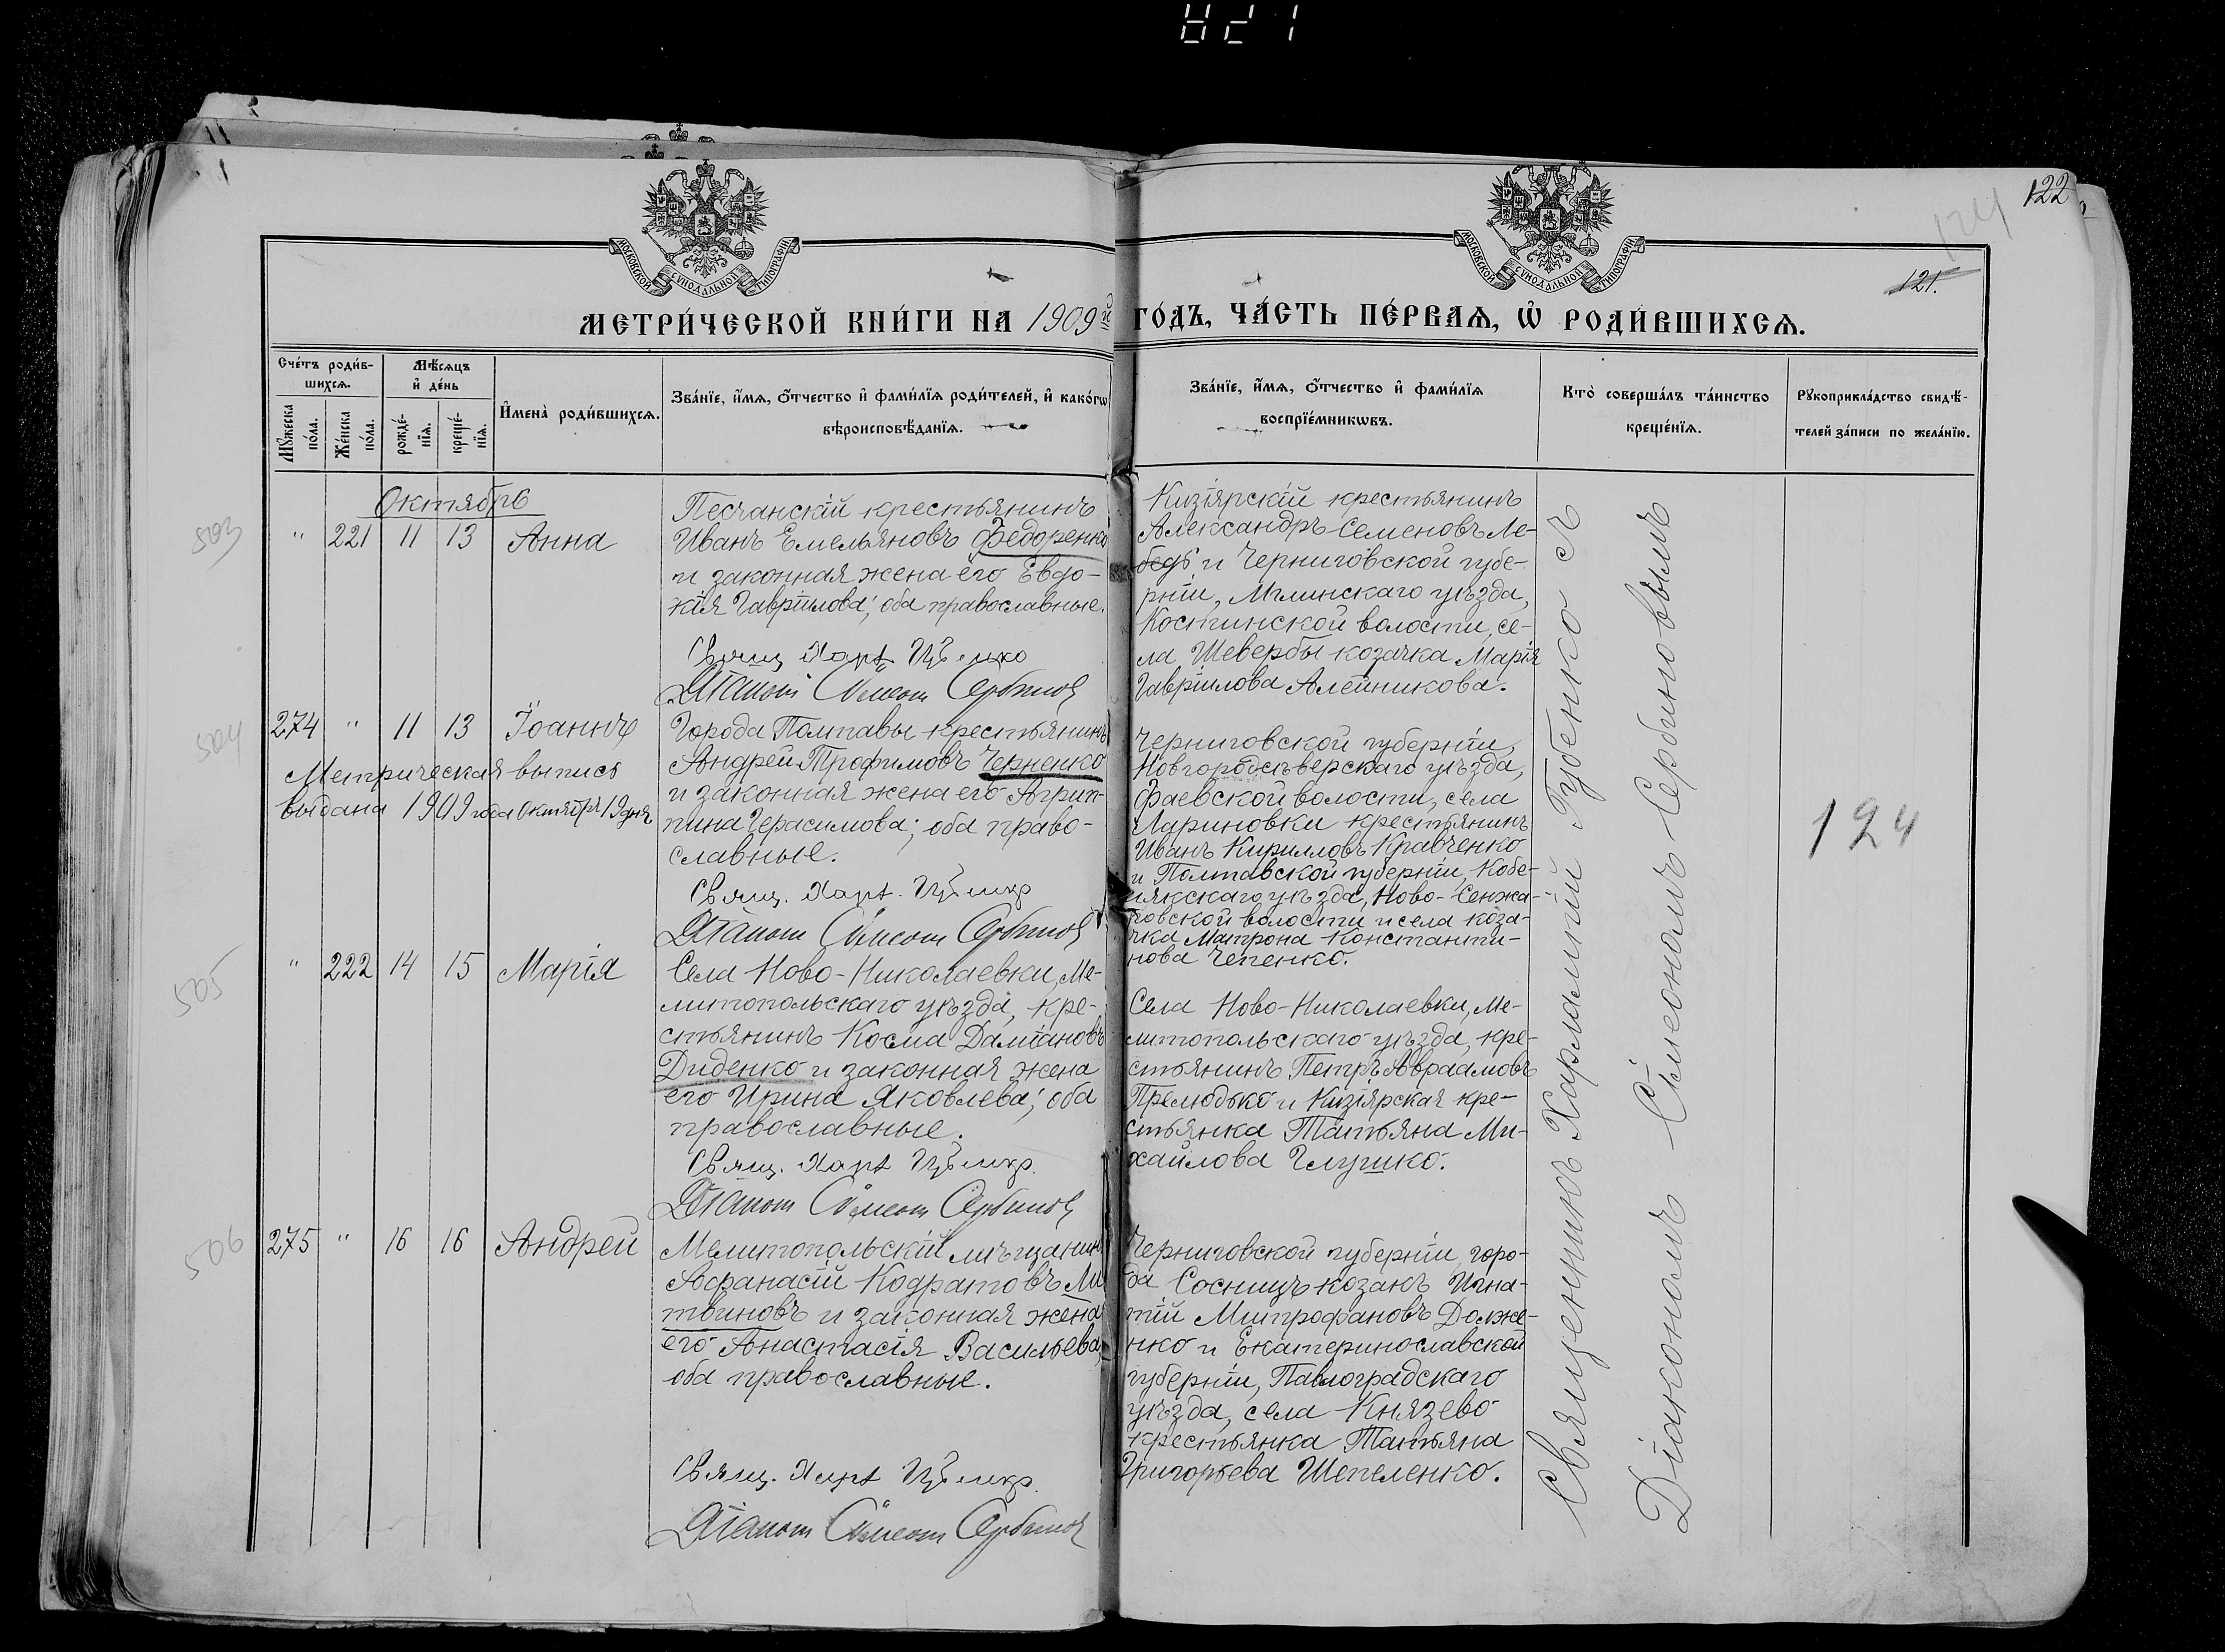 821
122
124
121.
МОСКОВСКОЙ СѴНОДАЛЬНОЙ ТИПОГРАФІИ
МОСКОВСКОЙ СѴНОДАЛЬНОЙ ТИПОГРАФІИ
МЕТРИ́ЧЕСКОЙ КНИ́ГИ НА 1909й ГО́ДЪ, ЧА́СТЬ ПЕ́РВАѦ, Ѡ҆ РОДИ́ВШИХСѦ.
Сче́тъ роди́в-
шихсѧ.
Мꙋ́жеска по́ла.
Же́нска по́ла.
Мѣ́сѧцъ
и҆ де́нь
рожде́-
нїѧ.
креще́-
нїѧ.
И҆мена̀ роди́вшихсѧ.
Зва́нїе, и҆́мѧ, ѻ҆́тчество и҆ фами́лїѧ роди́телей, и҆ како́гѡ
вѣроисповѣ́данїѧ.
Зва́нїе, и҆́мѧ, ѻ҆́тчество и҆ фами́лїѧ
воспрїе́мникѡвъ.
Кто̀ соверша́лъ та́инство
креще́нїѧ.
Рꙋкоприкла́дство свидѣ́-
телей за́писи по жела́нїю.
Октябрь
503
" 221 11 13 Анна
Песчанскій крестьянинъ
Иванъ Емельяновъ Федоренко
и законная жена его Евдо-
кія Гавріилова; оба православные.
Свящ. Харл.
Діаконъ Сѵмеонъ Сербиновъ
Кизіярскій крестьянинъ
Александръ Семеновъ Ле-
бедь и Черниговской губе-
рніи, Мглинскаго уѣзда,
Костинской волости, се-
ла Шевербы козачка Марія
Гавріилова Алейникова.
504
274 " 11 13 Іоаннъ
Метрическая выпись
выдана 1909 года Октября 19 дня
Города Полтавы крестьянинъ
Андрей Трофимовъ Черненко
и законная жена его Агрип-
пина Герасимова; оба право-
славные.
Свящ. Харл.
Діаконъ Сѵмеонъ Сербиновъ
Черниговской губерніи,
Новгородсѣверскаго уѣзда,
Фаевской волости, села
Лариновки крестьянинъ
Иванъ Кирилловъ Кравченко
и Полтавской губерніи, Кобе-
лякскаго уѣзда, Ново-Сенжа-
ровской волости и села коза-
чка Матрона Константи-
нова Чепенко.
505
" 222 14 15 Марія
Села Ново-Николаевки, Ме-
литопольскаго уѣзда, кре-
стьянинъ Косма Даміановъ
Диденко и законная жена
его Ирина Яковлева; оба
православные.
Свящ. Харл.
Діаконъ Сѵмеонъ Сербиновъ
Села Ново-Николаевки, Ме-
литопольскаго уѣзда, кре-
стьянинъ Петръ Авраамовъ
Прелюдько и Кизіярская кре-
стьянка Татьяна Ми-
хайлова Глушко.
506
275 " 16 16 Андрей
Мелитопольскій мѣщанинъ
Афанасій Кодратовъ Ли-
твиновъ и законная жена
его Анастасія Васильева,
оба православные.
Свящ. Харл.
Діаконъ Сѵмеонъ Сербиновъ
Черниговской губерніи, горо-
да Сосницъ козакъ Игна-
тій Митрофановъ Долже-
нко и Екатеринославской
губерніи, Павлоградскаго
уѣзда, села Князево
крестьянка Татьяна
Григорьева Шепеленко.
Священникъ Харлампій Губенко съ
Діакономъ Сѵмеономъ Сербиновымъ
124